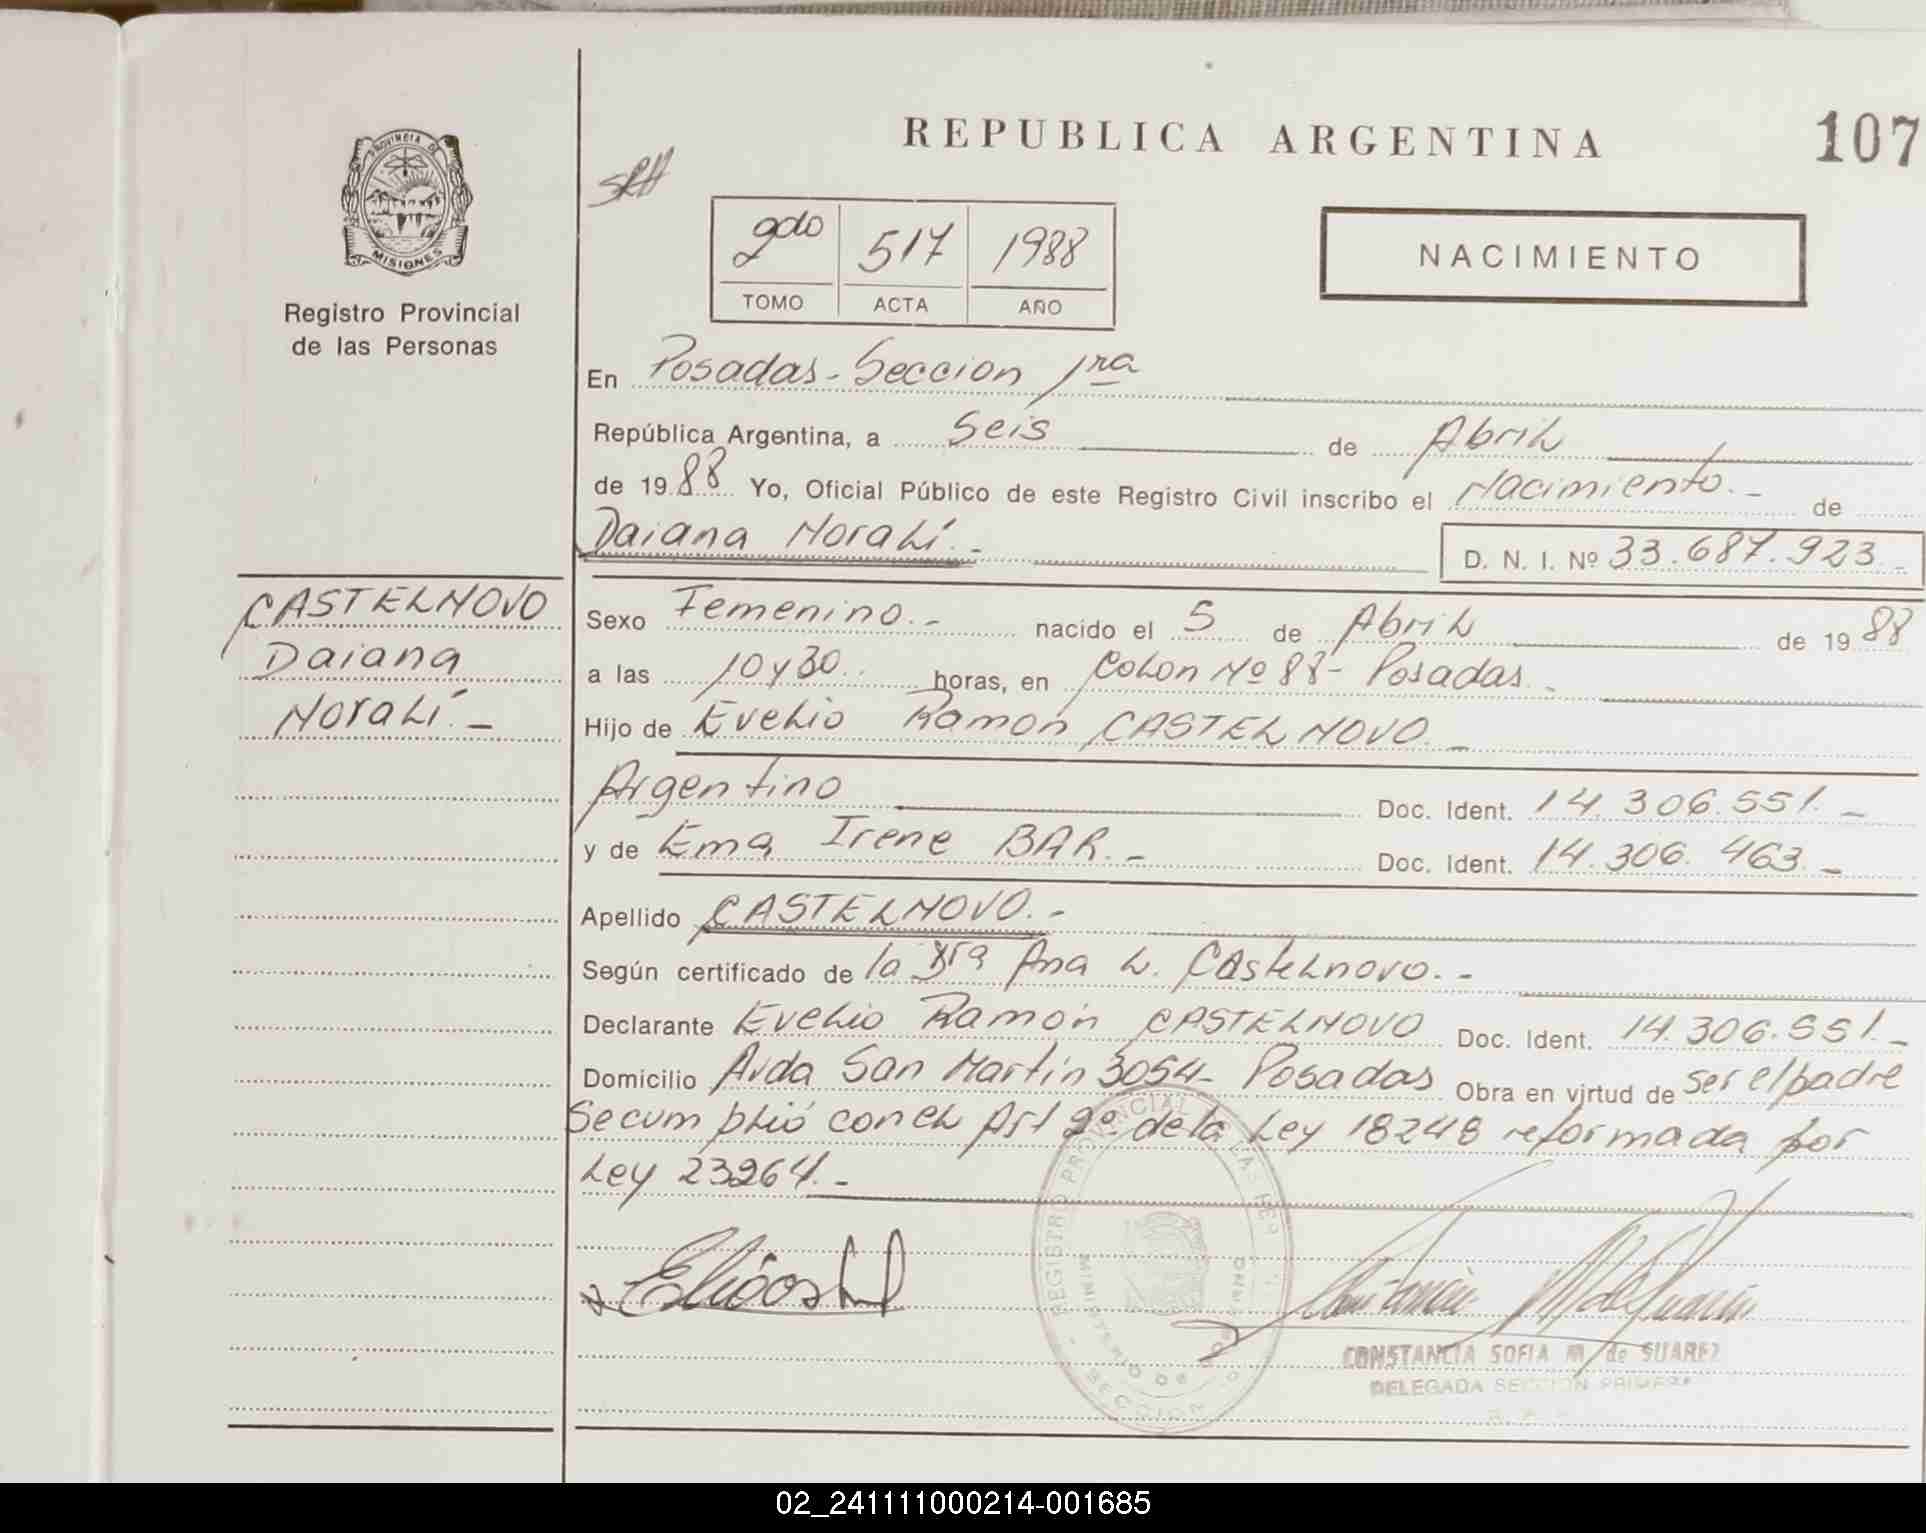 REPUBLICA ARGENTINA
107
PROVINCIA DE
MISIONES
Registro Provincial
de las Personas
2do 517 1988
TOMO ACTA AÑO
NACIMIENTO
En Posadas - Seccion 1ra
República Argentina, a Seis de Abril
de 1988 Yo, Oficial Público de este Registro Civil inscribo el Nacimiento.- de
Daiana Noralí.- D. N. I. Nº 33.687.923.-
CASTELNOVO
Daiana
Noralí.-
Sexo Femenino.- nacido el 5 de Abril de 1988
a las 10 y 30.. horas, en Colon Nº 88- Posadas.-
Hijo de Evelio Ramón CASTELNOVO.-
Argentino Doc. Ident. 14.306.551.-
y de Ema Irene BAR.- Doc. Ident. 14.306.463.-
Apellido CASTELNOVO.-
Según certificado de la Dra Ana L. Castelnovo.-
Declarante Evelio Ramón CASTELNOVO Doc. Ident. 14.306.551.-
Domicilio Avda San Martín 3054- Posadas Obra en virtud de ser el padre
Se cumplió con el Art 2º de la Ley 18248 reformada por
Ley 23264.-
REGISTRO PROVINCIAL DE LAS PER
MINISTERIO DE GOBIERNO
SECCION
CONSTANCIA SOFIA M de SUAREZ
DELEGADA SECCION PRIMERA
02_241111000214-001685